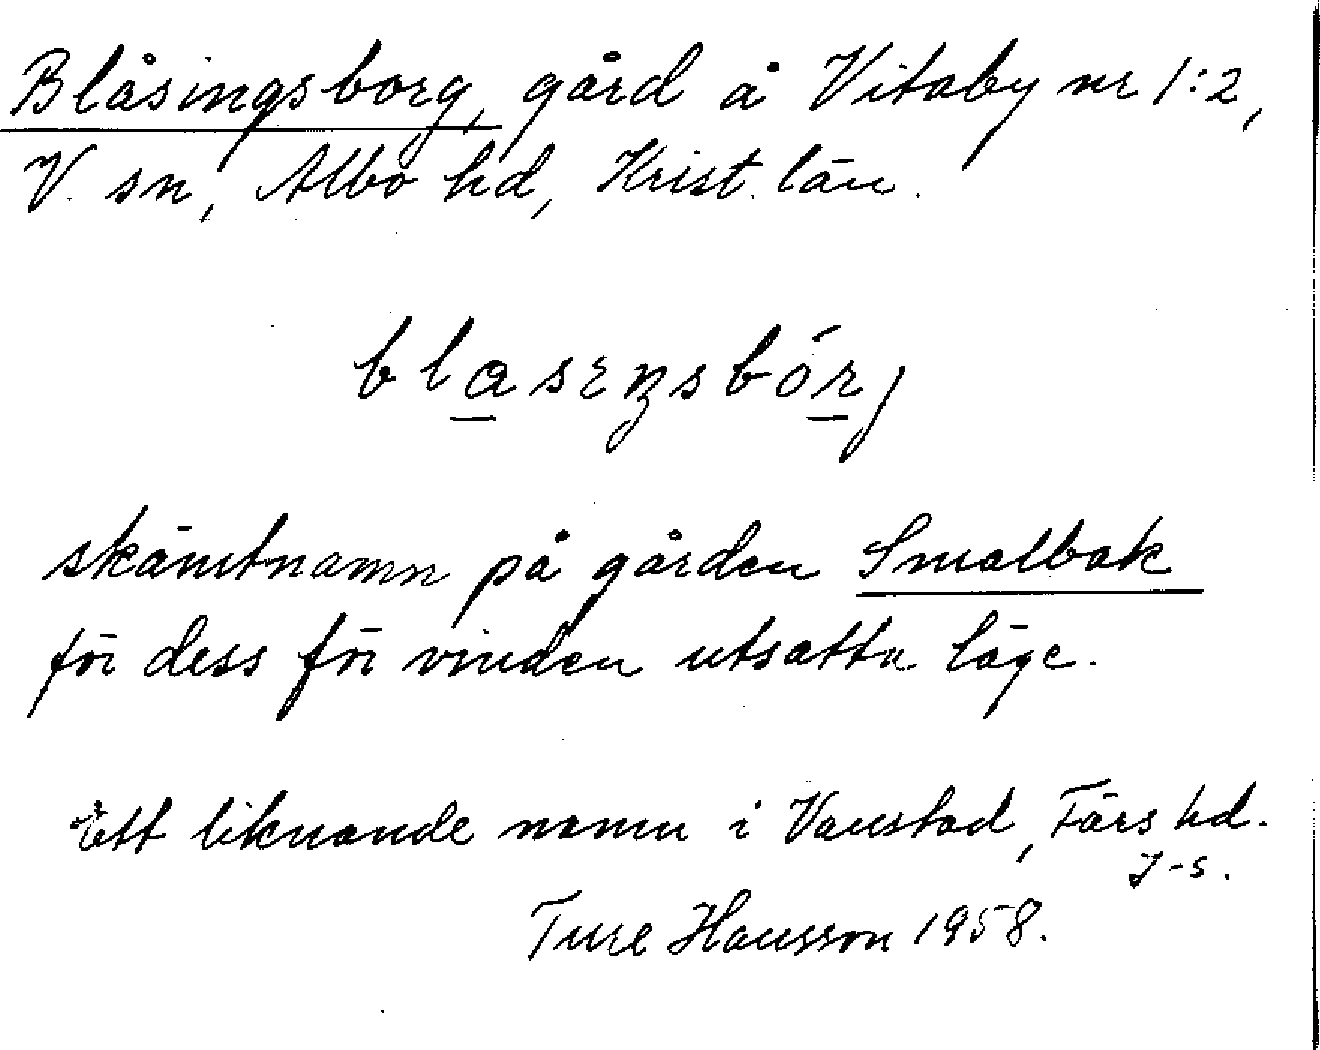 Blåsingsborg, gård å Vitaby nr 1:2,
V. sn, Albo hd, Krist. län.
blasɛŋsbórj
skämtnamn på gården Smalbak
för dess för vinden utsatta läge.
Ett liknande namn i Vanstad, Färs hd.
J-s.
Ture Hansson 1958.